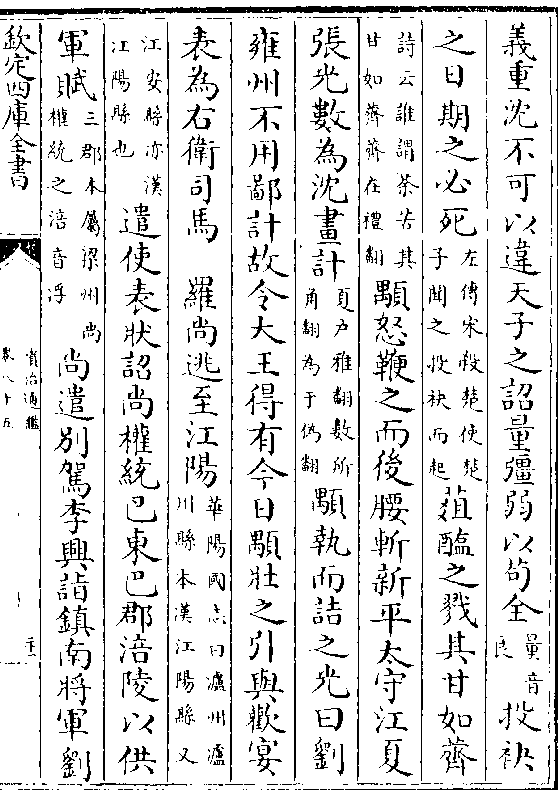 義重沈不可以違天子之詔量彊弱以茍全量音良投袂
之日期之必死左傳宋殺楚使楚子聞之投袂而起葅醢之戮其甘如薺
詩云誰謂荼苦其甘如薺薺在禮翻顒怒鞭之而後腰斬新平太守江夏
張光數為沈畫計夏户雅翻數所角翻為于偽翻顒執而詰之光曰劉
雍州不用鄙計故令大王得有今日顒壯之引與歡宴
表為右衛司馬 羅尚逃至江陽華陽國志曰瀘州瀘川縣本漢江陽縣又
江安縣亦漢江陽縣也遣使表狀詔尚權統巴東巴郡涪陵以供
軍賦三郡本屬梁州尚權統之涪音浮尚遣别駕李興詣鎮南將軍劉
欽定四庫全書
資治通鑑
卷八十五